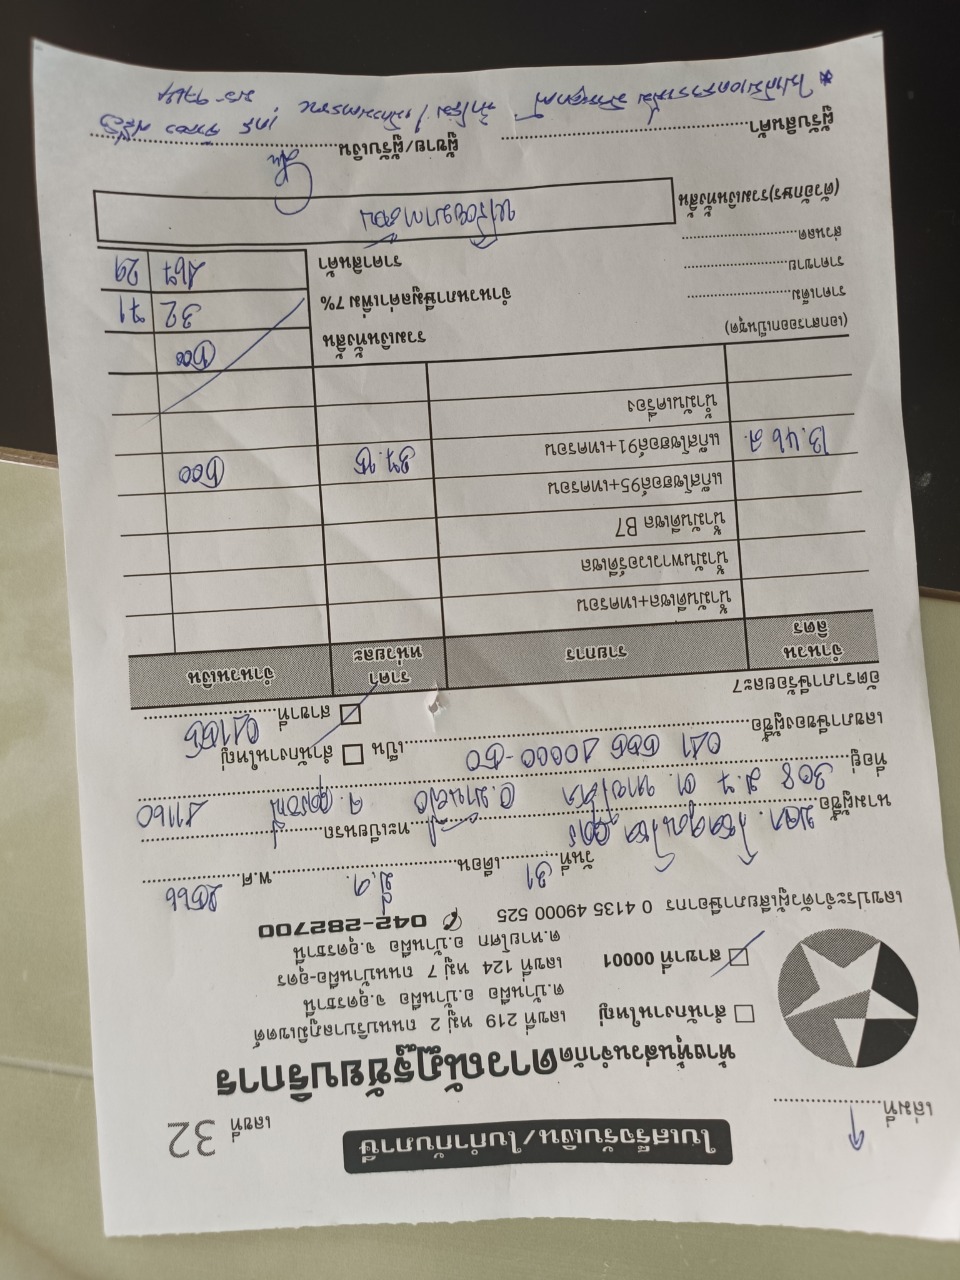 ใบเสร็จรับเงิน/ใบกำกับภาษี
เล่มที่ 1
เลขที่ 32
ห้างหุ้นส่วนจำกัดดาวณัฏฐชัยบริการ
สำนักงานใหญ่ เลขที่ 219 หมู่ 2 ถนนบริบาลภูมิเขตต์
ต.บ้านผือ อ.บ้านผือ จ.อุดรธานี
สาขาที่ 00001 เลขที่ 124 หมู่ 7 ถนนบ้านผือ-อุดร
ต.หายโศก อ.บ้านผือ จ.อุดรธานี
เลขประจำตัวผู้เสียภาษีอากร 0 4135 49000 525 042-282700
วันที่ 31 เดือน มี.ค. พ.ศ. 2566
นามผู้ซื้อ ทะเบียนรถ
ที่อยู่ 308 ม.7 ต. หายโศก อ.บ้านผือ จ.อุดรธานี 41160
เลขภาษีของผู้ซื้อ เป็น สำนักงานใหญ่
สาขาที่
อัตราภาษีร้อยละ7
จำนวน ลิตร รายการ ราคา หน่วยละ จำนวนเงิน
น้ำมันดีเซล+เทครอน
น้ำมันพาวเวอร์ดีเซล
น้ำมันดีเซล B7
แก๊สโซฮอล์95+เทครอน
13.46 ล. แก๊สโซฮอล์91+เทครอน 37.15 500
น้ำมันเครื่อง
(เอกสารออกเป็นชุด) รวมเงินทั้งสิ้น 500
ราคาเต็ม จำนวนภาษีมูลค่าเพิ่ม 7% 32 71
ราคาขาย ราคาสินค้า 467 29
ส่วนลด
(ตัวอักษร)รวมเงินทั้งสิ้น ห้าร้อยบาทถ้วน
ผู้รับสินค้า ผู้ขาย/ผู้รับเงิน